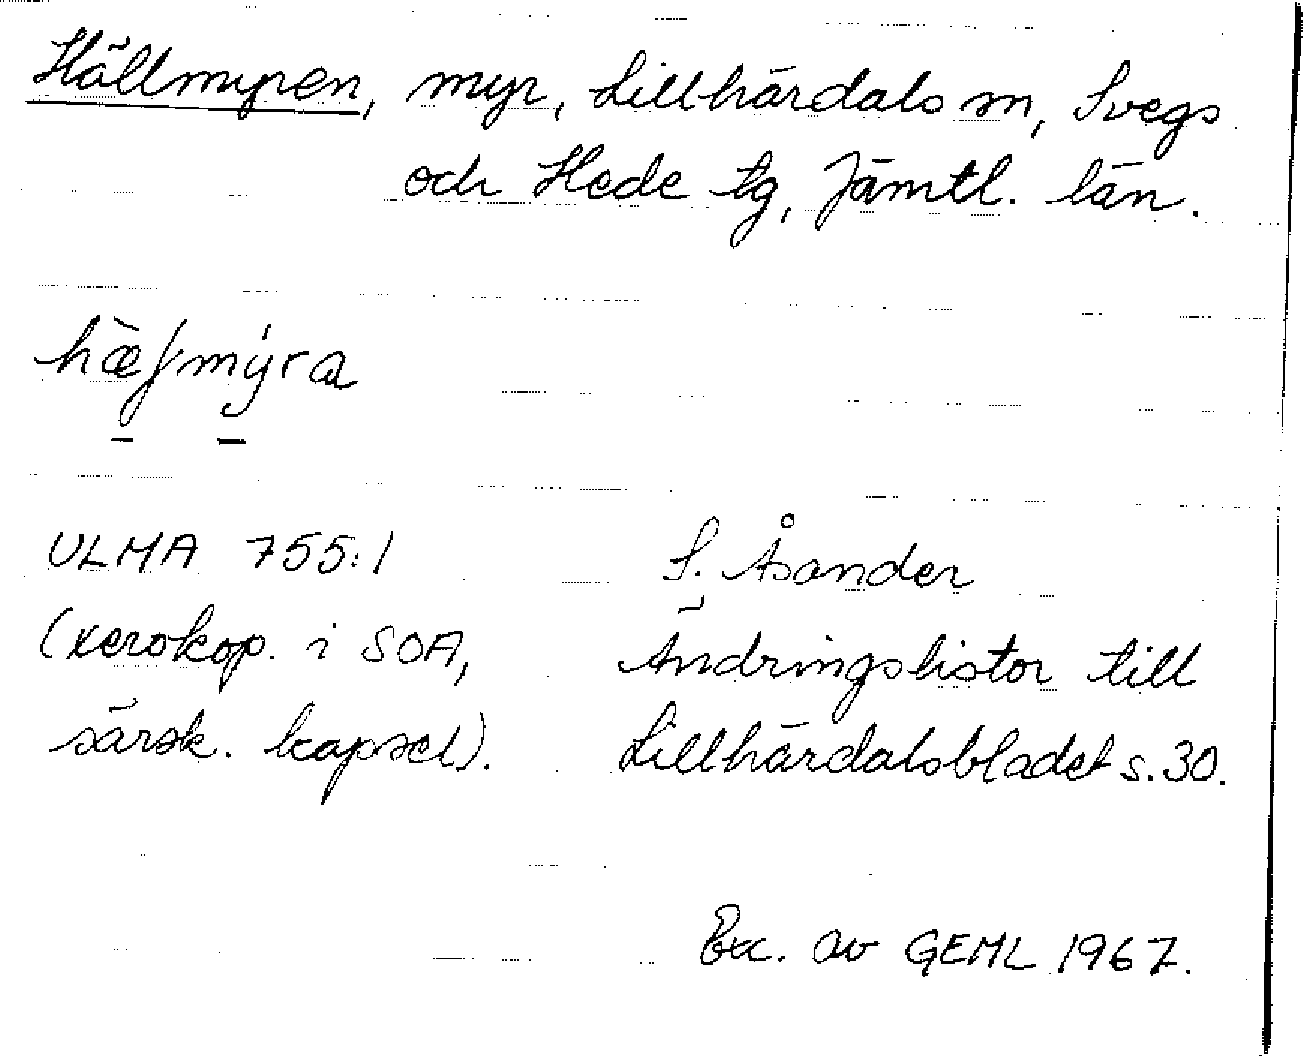 Hällmyren, myr, Lillhärdals sn, Svegs
och Hede tg, Jämtl. län.
hæʃmýra
ULMA 755:1
(xerokop. i SOA,
särsk. kapsel).
S. Åsander
Ändringslistor till
Lillhärdalsbladet s. 30.
Exc. av GEML 1967.